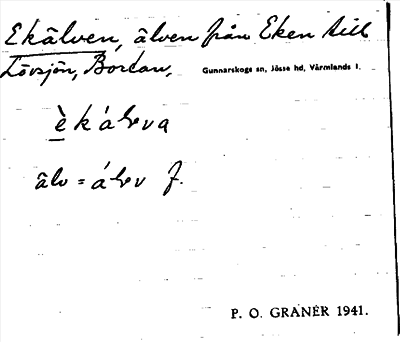 Ekälven, älven från Eken till
Lövsjön, Bordan,
Gunnarskogs sn, Jösse hd, Värmlands l.
älv = f.
P. O. GRANÉR 1941.